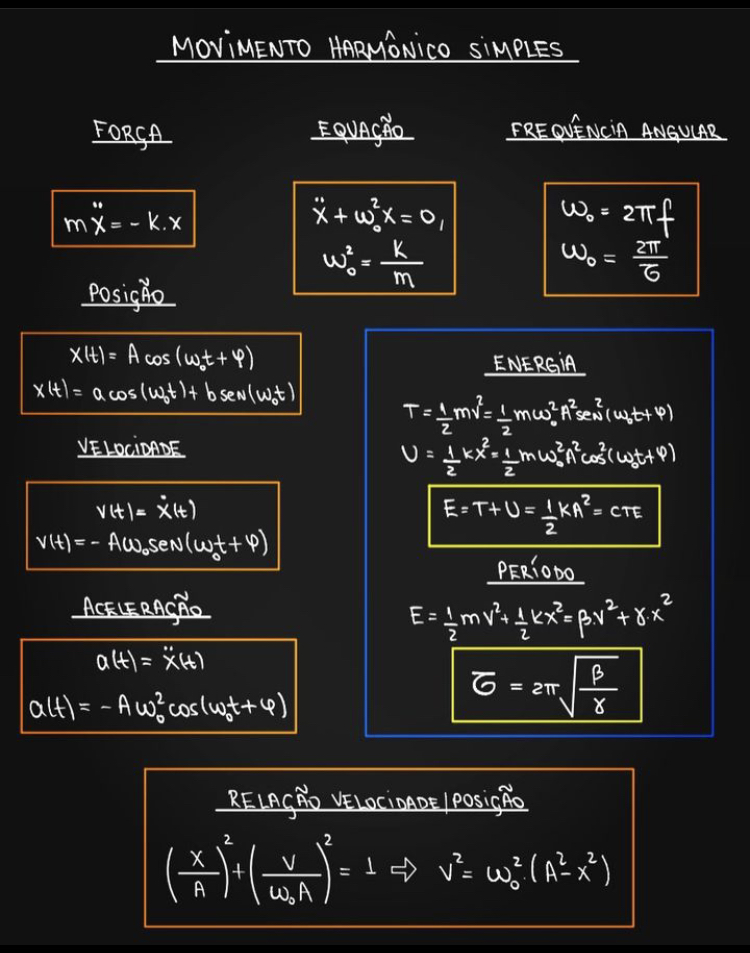 MOVIMENTO HARMÔNICO SIMPLES
FORÇA
mẍ = - K.x
EQUAÇÃO
ẍ + ω₀²x = 0,
ω₀² = K/m
FREQUÊNCIA ANGULAR
ω₀ = 2πf
ω₀ = 2π/τ
POSIÇÃO
x(t) = A cos(ω₀t + φ)
x(t) = a cos(ω₀t) + b sen(ω₀t)
VELOCIDADE
v(t) = ẋ(t)
v(t) = - Aω₀sen(ω₀t + φ)
ACELERAÇÃO
a(t) = ẍ(t)
a(t) = - Aω₀²cos(ω₀t + φ)
ENERGIA
T = 1/2 mv² = 1/2 mω₀²A²sen²(ω₀t + φ)
U = 1/2 kx² = 1/2 mω₀²A²cos²(ω₀t + φ)
E = T + U = 1/2 KA² = CTE
PERÍODO
E = 1/2 mv² + 1/2 kx² = β.v² + γ.x²
τ = 2π√(β/γ)
RELAÇÃO VELOCIDADE/POSIÇÃO
(x/A)² + (v/ω₀A)² = 1 ⇨ v² = ω₀².(A² - x²)